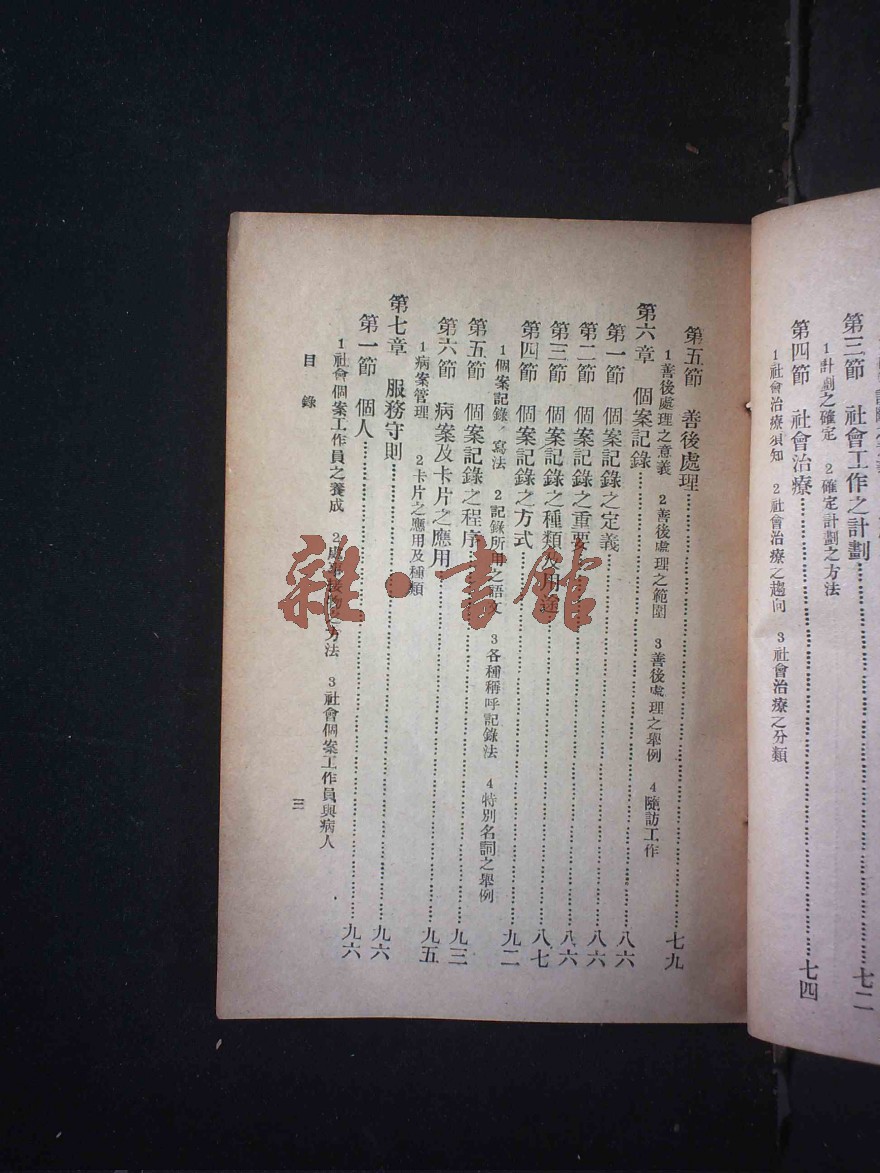 第三節 社會工作之計劃…………七二
1計劃之確定 2確定計劃之方法
第四節 社會治療…………七四
1社會治療須知 2社會治療之趨向 3社會治療之分類
第五節 善後處理…………七九
1善後處理之意義 2善後處理之範圍 3善後處理之舉例 4隨訪工作
第六章 個案記錄…………八六
第一節 個案記錄之定義…………八六
第二節 個案記錄之重要…………八六
第三節 個案記錄之種類及用途…………八七
第四節 個案記錄之方式…………九二
1個案記錄 寫法 2記錄所用之語文 3各種稱呼記錄法 4特別名詞之舉例
第五節 個案記錄之程序…………九三
第六節 病案及卡片之應用…………九五
1病案管理 2卡片之應用及種類
第七章 服務守則…………九六
第一節 個人…………九六
1社會個案工作員之養成 2處事接物之方法 3社會個案工作員與病人
目錄
三
雜·書館